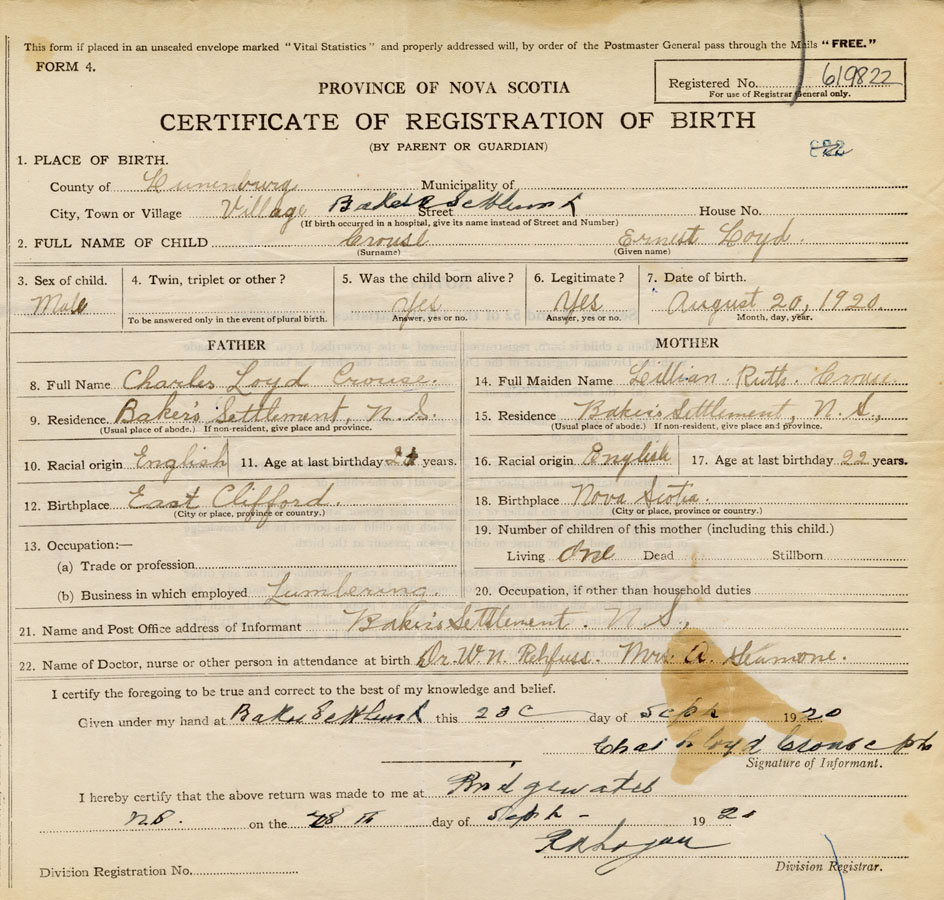 This form if placed in an unsealed envelope marked "Vital Statistics" and properly addressed will, by order of the Postmaster General pass through the Mails "FREE."
FORM 4.
Registered No. 619822
For use of Registrar General only.
PROVINCE OF NOVA SCOTIA
CERTIFICATE OF REGISTRATION OF BIRTH
(BY PARENT OR GUARDIAN)
822
1. PLACE OF BIRTH.
County of Lunenburg Municipality of
City, Town or Village Village Bakers Settlement Street House No.
(If birth occurred in a hospital, give its name instead of Street and Number)
2. FULL NAME OF CHILD Crouse Ernest Loyd.
(Surname) (Given name)
3. Sex of child. 4. Twin, triplet or other? 5. Was the child born alive? 6. Legitimate? 7. Date of birth.
Male Yes Yes August 20, 1920.
To be answered only in the event of plural birth. Answer, yes or no. Answer, yes or no. Month, day, year.
FATHER
8. Full Name Charles Loyd Crouse.
9. Residence Baker's Settlement, N. S.
(Usual place of abode.) If non-resident, give place and province.
10. Racial origin English 11. Age at last birthday 21 years.
12. Birthplace East Clifford.
(City or place, province or country.)
13. Occupation:—
(a) Trade or profession
(b) Business in which employed Lumbering.
MOTHER
14. Full Maiden Name Lillian Ruth. Crouse
15. Residence Bakers Settlement, N. S.,
(Usual place of abode.) If non-resident, give place and province.
16. Racial origin English 17. Age at last birthday 22 years.
18. Birthplace Nova Scotia.
(City or place, province or country.)
19. Number of children of this mother (including this child.)
Living One Dead Stillborn
20. Occupation, if other than household duties
21. Name and Post Office address of Informant Bakers Settlement. N. S.,
22. Name of Doctor, nurse or other person in attendance at birth Dr. W. N. Rehfuss. Mrs. A. Seamone.
I certify the foregoing to be true and correct to the best of my knowledge and belief.
Given under my hand at Bakers Settlement this 23 day of Sept 1920
Chas Lloyd Crouse
Signature of Informant.
I hereby certify that the above return was made to me at Bridgewater
NS. on the 28th day of Sept - 1920
Division Registration No. Division Registrar.